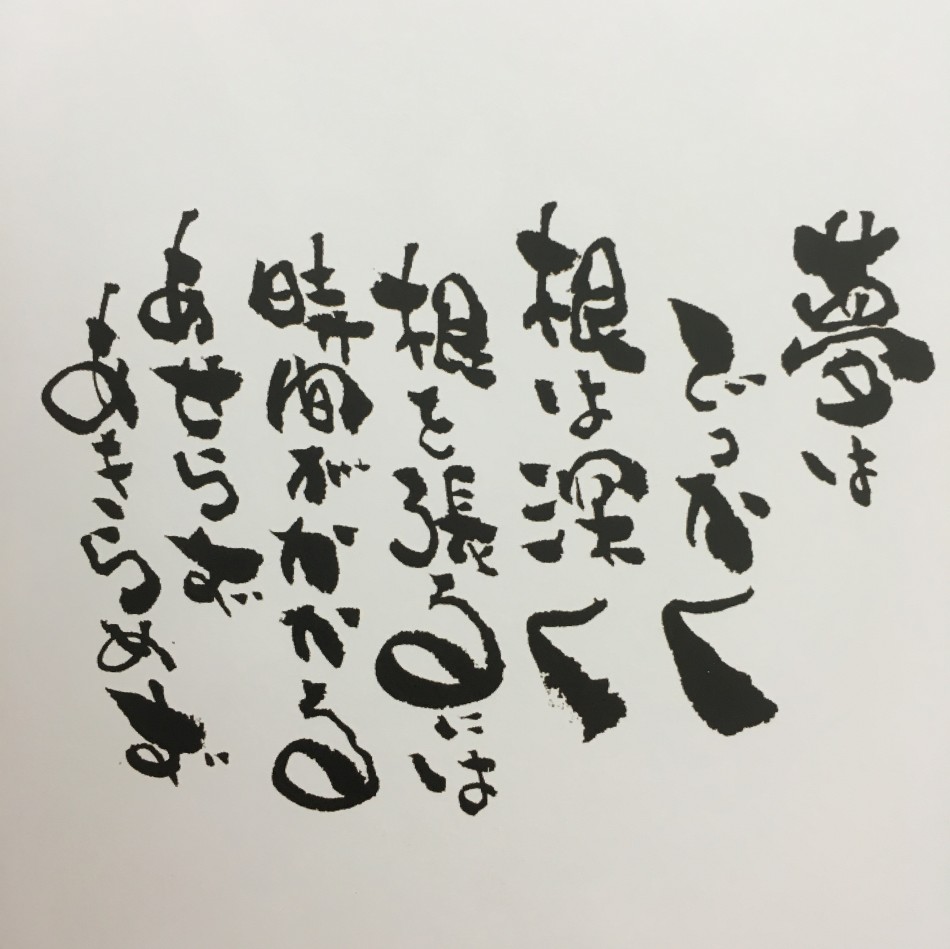 夢は
でっかく
根は深く
根を張るには
時間がかかる
あせらず
あきらめず